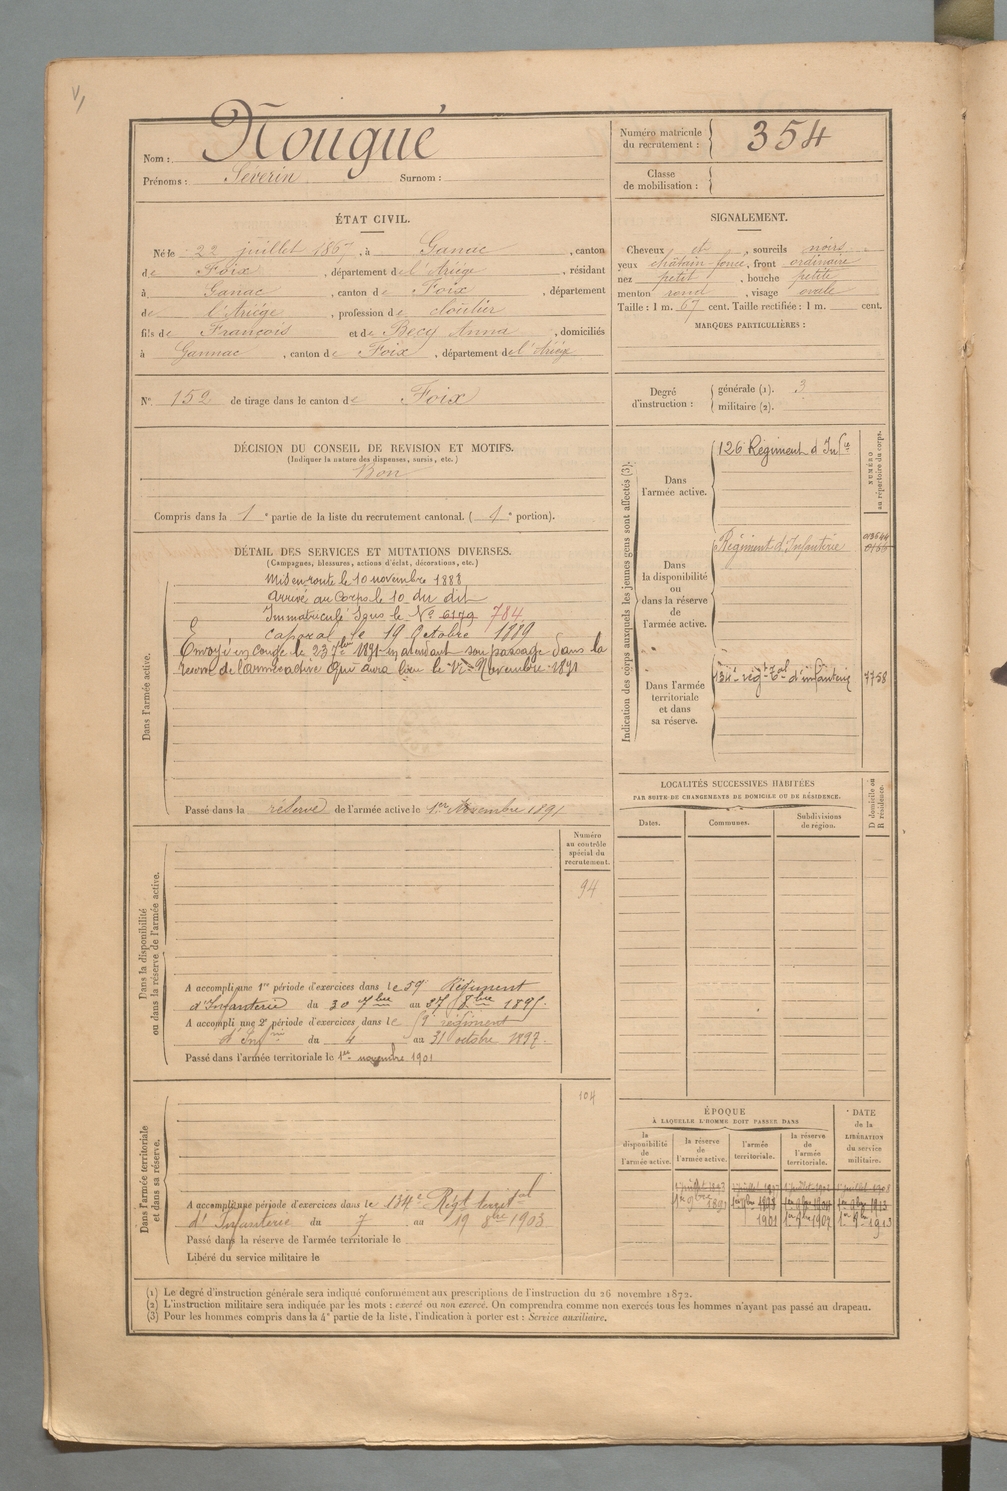 V/
Nom : Nougué
Prénoms : Séverin Surnom :
Numéro matricule du recrutement : 354
Classe de mobilisation :
ÉTAT CIVIL.
Né le 22 juillet 1867, à Ganac, canton
de Foix, département de l'Ariège, résidant
à Ganac, canton de Foix, département
de l'Ariège, profession de cloutier
fils de François et de Becq Anna, domiciliés
à Gannac, canton de Foix, département de l'Ariège
SIGNALEMENT.
Cheveux et, sourcils noirs
yeux châtain foncé, front ordinaire
nez petit, bouche petite
menton rond, visage ovale
Taille : 1 m. 67 cent. Taille rectifiée : 1 m. cent.
MARQUES PARTICULIÈRES :
N° 152 de tirage dans le canton de Foix
Degré d'instruction : générale (1). 3
militaire (2).
DÉCISION DU CONSEIL DE REVISION ET MOTIFS.
(Indiquer la nature des dispenses, sursis, etc.)
Bon
Compris dans la 1e partie de la liste du recrutement cantonal. ( 1e portion).
DÉTAIL DES SERVICES ET MUTATIONS DIVERSES.
(Campagnes, blessures, actions d'éclat, décorations, etc.)
Dans l'armée active.
Mis en route le 10 novembre 1888
Arrivé au Corps le 10 du dit
Immatriculé sous le N° 6179 784
Caporal le 19 Octobre 1889
Envoyé en congé le 23 7bre 1891 en attendant son passage dans la
réserve de l'armée active qui aura lieu le 1er Novembre 1891
Passé dans la réserve de l'armée active le 1er Novembre 1891
Indication des corps auxquels les jeunes gens sont affectés (3).
NUMÉRO au répertoire du corps.
Dans l'armée active.
126 Régiment d'Infie
Dans la disponibilité ou dans la réserve de l'armée active.
Régiment d'Infanterie
Dans l'armée territoriale et dans sa réserve.
134e régt Tal d'infanterie 7758
LOCALITÉS SUCCESSIVES HABITÉES
PAR SUITE DE CHANGEMENTS DE DOMICILE OU DE RÉSIDENCE.
Dates. Communes. Subdivisions de région. D domicile ou R résidence.
Dans la disponibilité ou dans la réserve de l'armée active.
Numéro au contrôle spécial du recrutement.
94
A accompli une 1re période d'exercices dans le 59e Régiment
d'Infanterie du 30 7bre au 27 8bre 1895.
A accompli une 2e période d'exercices dans le régiment
d'Infie du 4 au 31 octobre 1897.
Passé dans l'armée territoriale le 1er novembre 1901
Dans l'armée territoriale et dans sa réserve.
104
A accompli une période d'exercices dans le 134e Régt territal
d'Infanterie du 7 au 19 8bre 1903
Passé dans la réserve de l'armée territoriale le
Libéré du service militaire le
ÉPOQUE
À LAQUELLE L'HOMME DOIT PASSER DANS
la disponibilité de l'armée active. la réserve de l'armée active. l'armée territoriale. la réserve de l'armée territoriale.
DATE de la LIBÉRATION du service militaire.
1er 9bre 1891
1901 1er 9bre 1907 1er 9bre 1913
(1) Le degré d'instruction générale sera indiqué conformément aux prescriptions de l'instruction du 26 novembre 1872.
(2) L'instruction militaire sera indiquée par les mots : exercé ou non exercé. On comprendra comme non exercés tous les hommes n'ayant pas passé au drapeau.
(3) Pour les hommes compris dans la 4e partie de la liste, l'indication à porter est : Service auxiliaire.